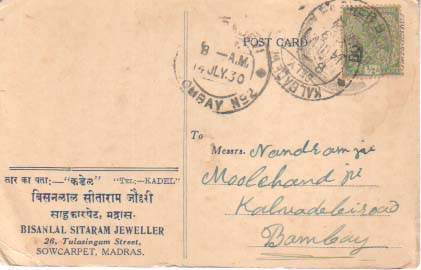 POST CARD
8 - A.M.
14 JLY. 30
BOMBAY
To
Messrs. Nandramjee
Moolchand jee
Kalvadeviroad
Bombay
तार का पता:—"कडेल" "TEL:—KADEL"
बिसनलाल सीताराम जौहरी
साहुकारपेट, मद्रास.
BISANLAL SITARAM JEWELLER
26, Tulasingum Street,
SOWCARPET, MADRAS.